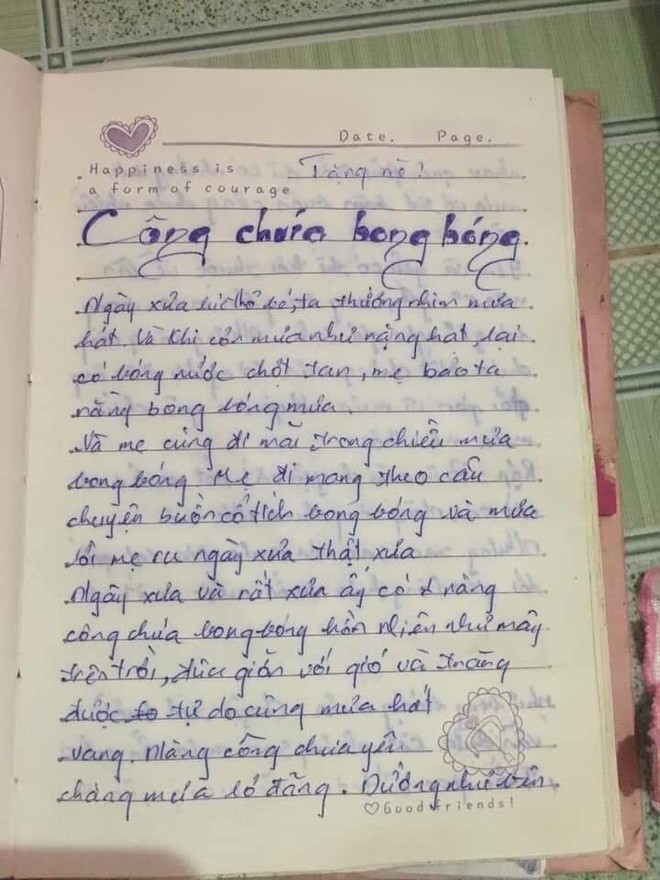 Date. Page.
Happiness is
a form of courage
Tặng nè!
Công chúa bong bóng.
Ngày xửa lúc thở bé, ta thường nhìn mưa
hát và khi cơn mưa như nặng hạt, lại
có bóng nước chợt tan, mẹ bảo ta
rằng bong bóng mưa.
Và mẹ cũng đi mãi trong chiều mưa
bong bóng. Mẹ đi mang theo câu
chuyện buồn cổ tích bong bóng và mưa
lời mẹ ru ngày xửa thật xưa
Ngày xưa và rất xưa ấy có 1 nàng
công chúa bong bóng hồn nhiên như mây
trên trời, đùa giỡn với gió và trăng
được tự do cùng mưa hát
vang. Nàng công chúa yêu
chàng mưa lơ đãng. Dường như bên
Good friends!